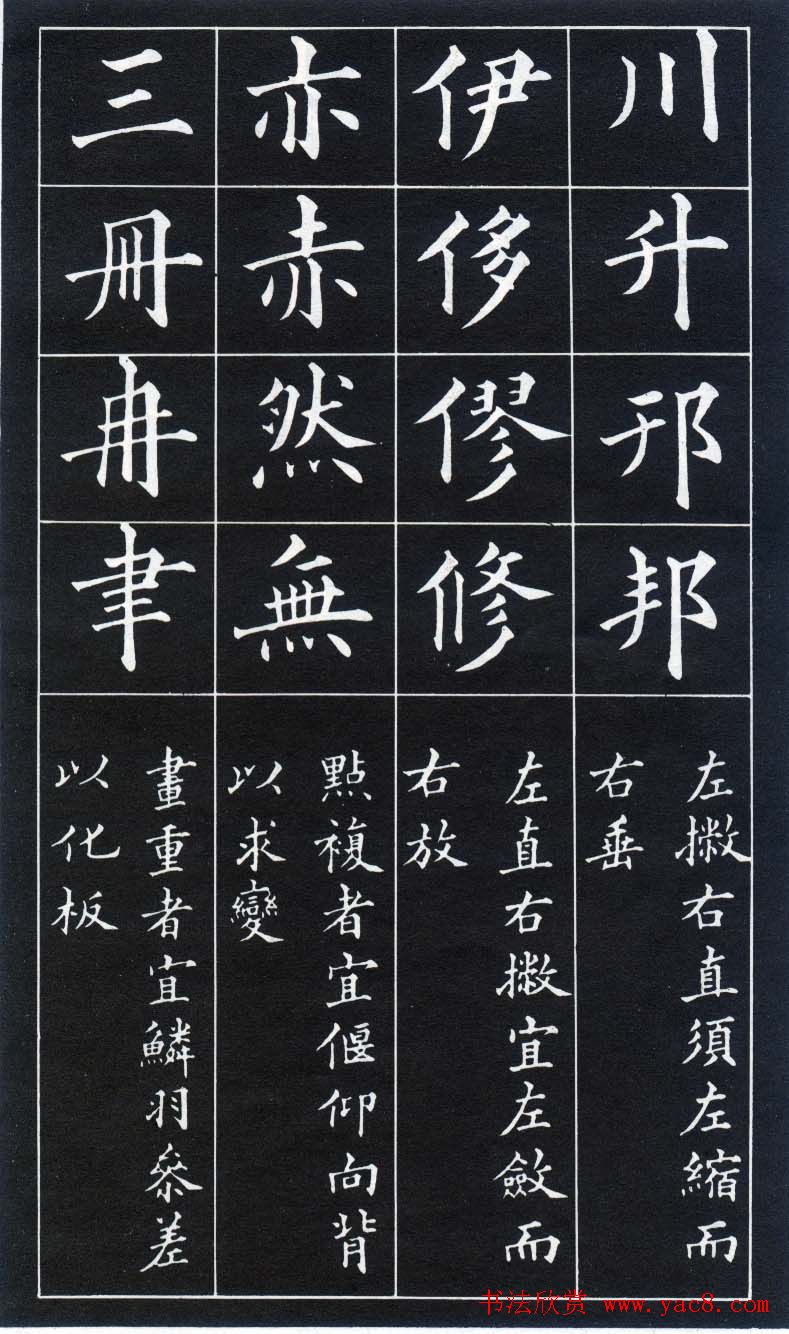 川升邘邦
左撇右直須左縮而
右垂
伊侈僇修
左直右撇宜左斂而
右放
亦赤然無
點複者宜偃仰向背
以求變
三冊冉聿
畫重者宜鱗羽參差
以化板
书法欣赏 www.yac8.com